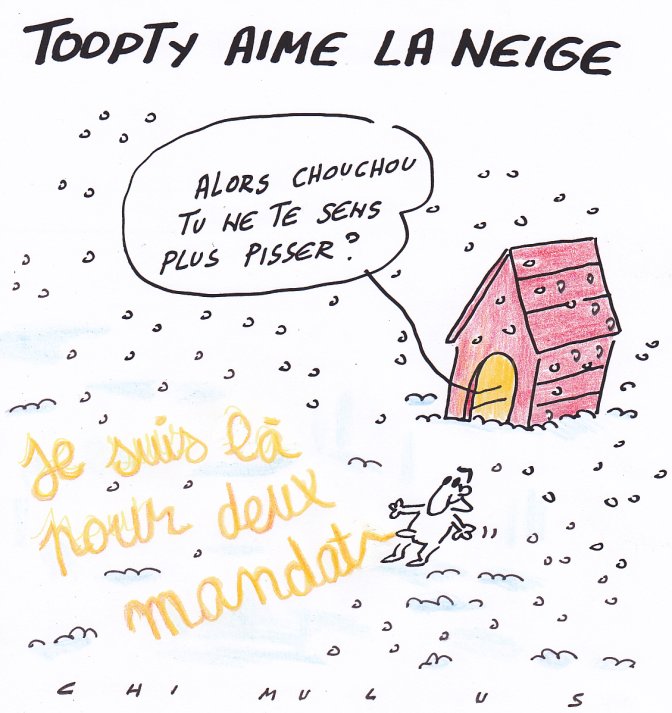 TOOPTY AIME LA NEIGE
ALORS CHOUCHOU
TU NE TE SENS
PLUS PISSER ?
Je suis là
pour deux
mandats
CHIMULUS